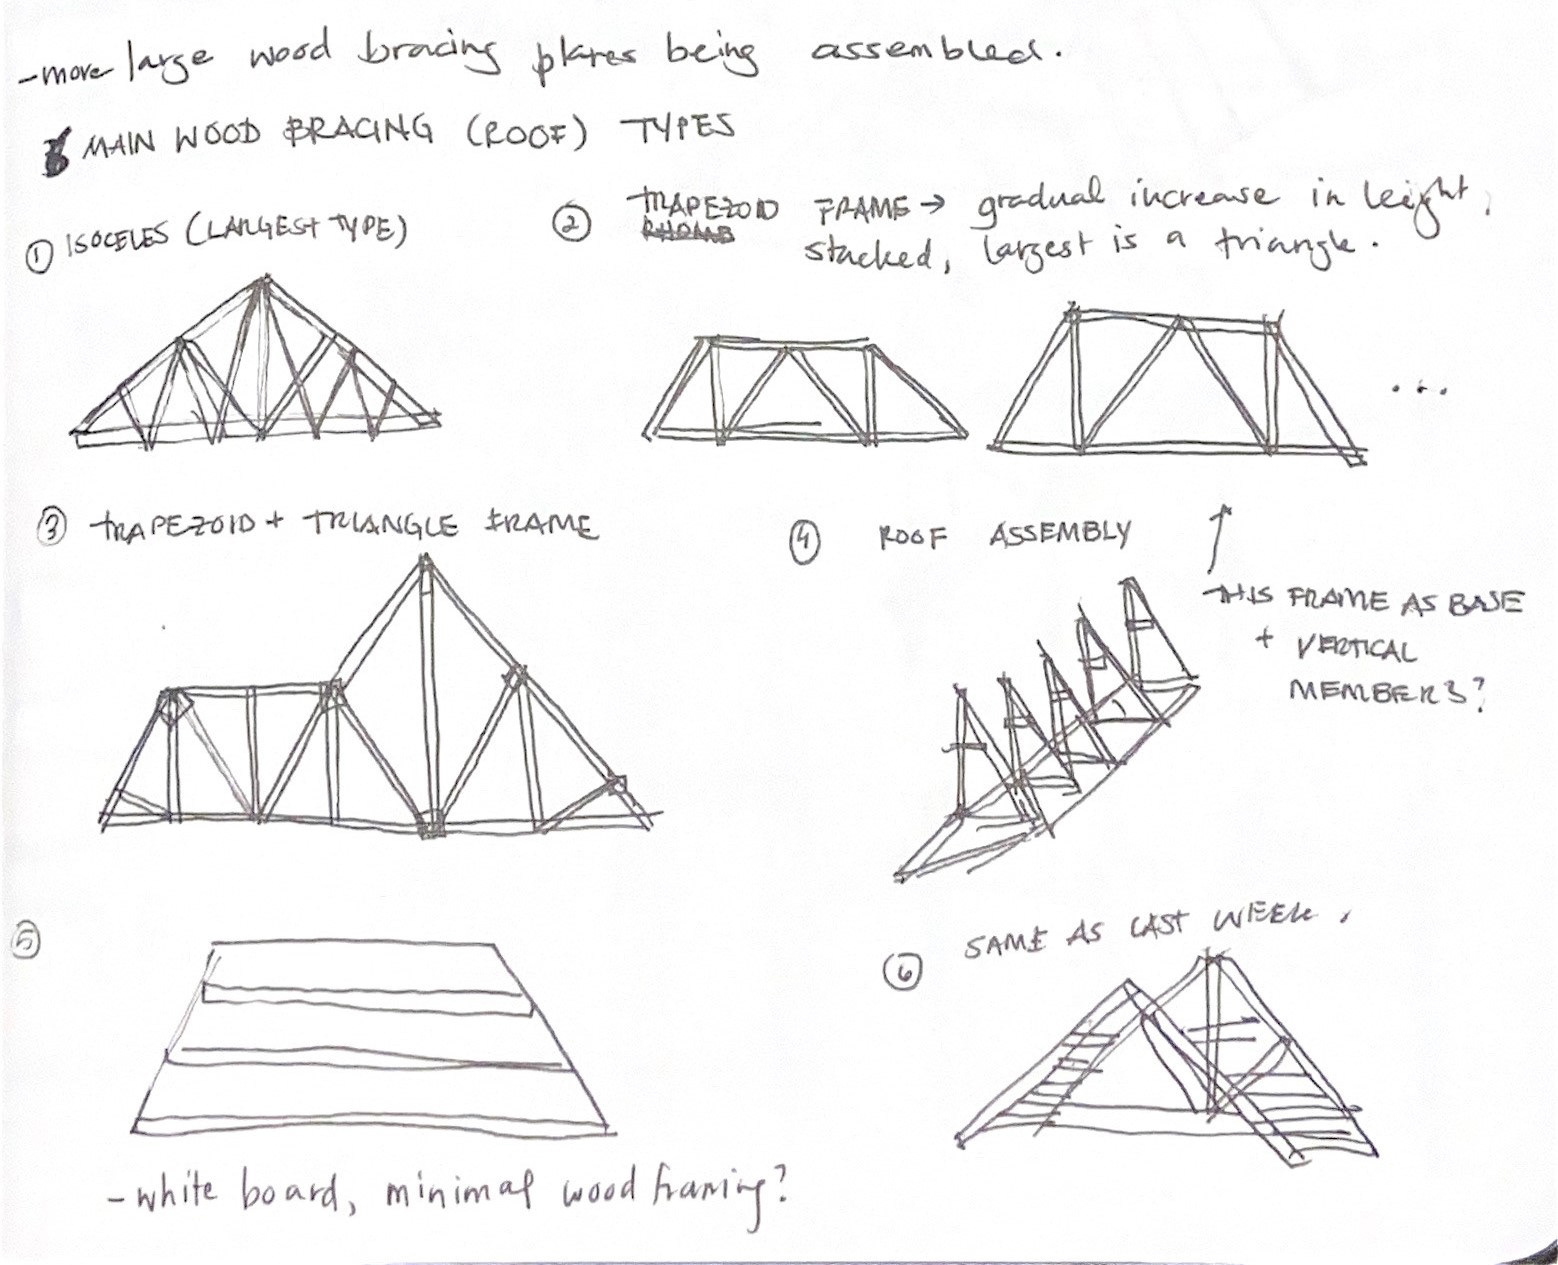 -more large wood bracing planes being assembled.
6 MAIN WOOD BRACING (ROOF) TYPES
① ISOCELES (LARGEST TYPE)
② TRAPEZOID FRAME → gradual increase in height,
RHOMB
stacked, largest is a triangle.
...
③ TRAPEZOID + TRIANGLE FRAME
④ ROOF ASSEMBLY
↑
THIS FRAME AS BASE
+ VERTICAL
MEMBERS?
⑤
- white board, minimal wood framing?
⑥ SAME AS LAST WEEK.